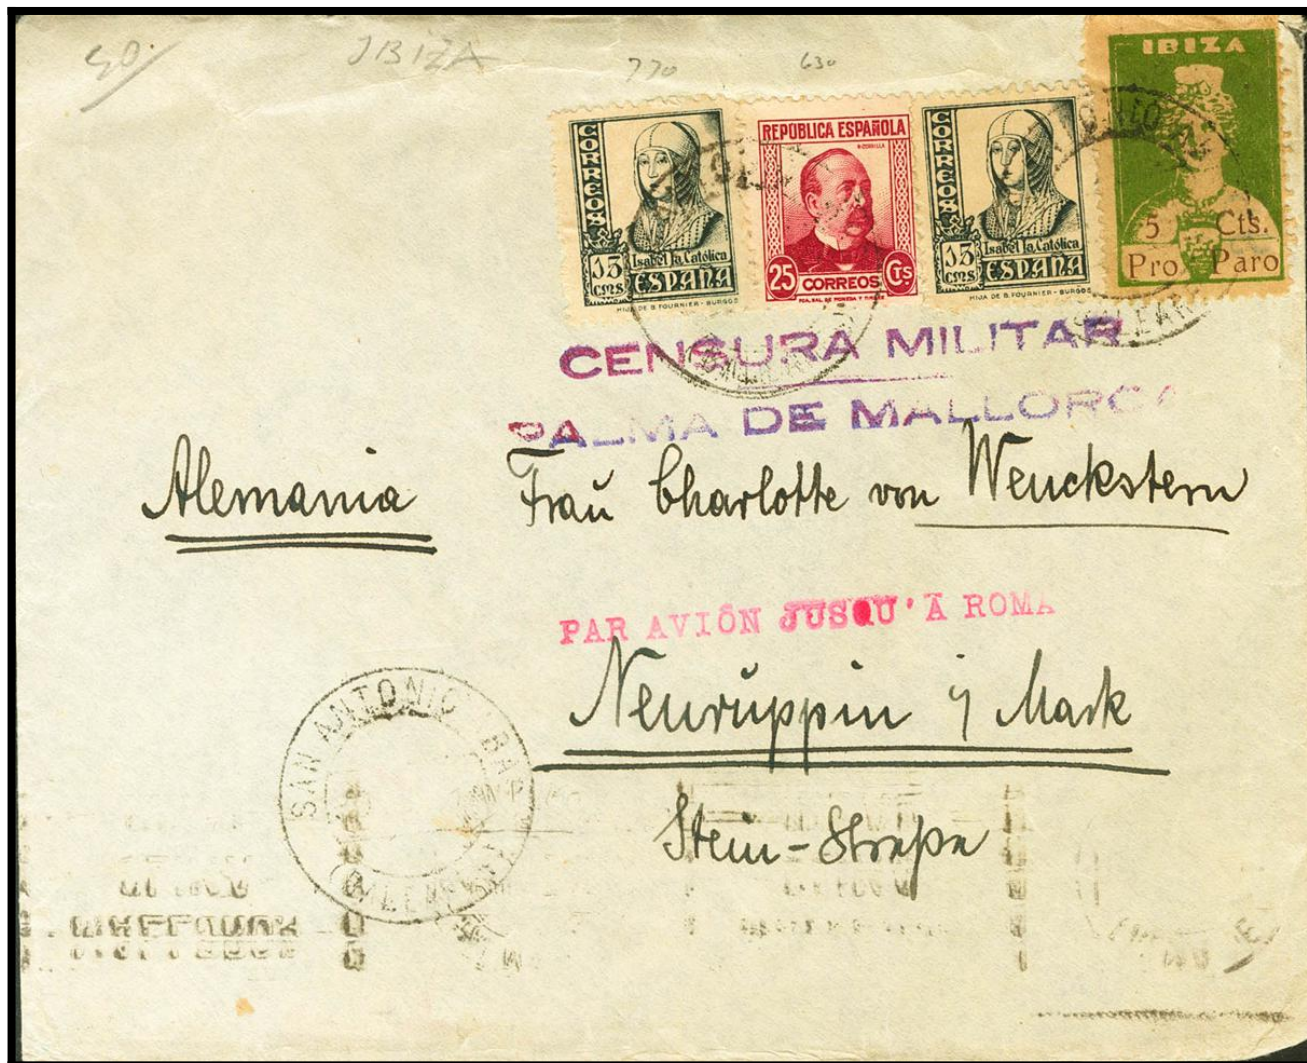 40.
IBIZA
770
630
CORREOS
15
CMS
Isabel la Católica
ESPAÑA
HIJA DE B. FOURNIER - BURGOS
REPÚBLICA ESPAÑOLA
R. ZORRILLA
25
CORREOS
CTS
CORREOS
15
CMS
Isabel la Católica
ESPAÑA
HIJA DE B. FOURNIER - BURGOS
IBIZA
5 Cts.
Pro Paro
CENSURA MILITAR
PALMA DE MALLORCA
Alemania
Frau Charlotte von Wenckstern
PAR AVIÓN JUSQU'A ROMA
Neuruppin i/ Mark
Stein-Straße
SAN ANTONIO